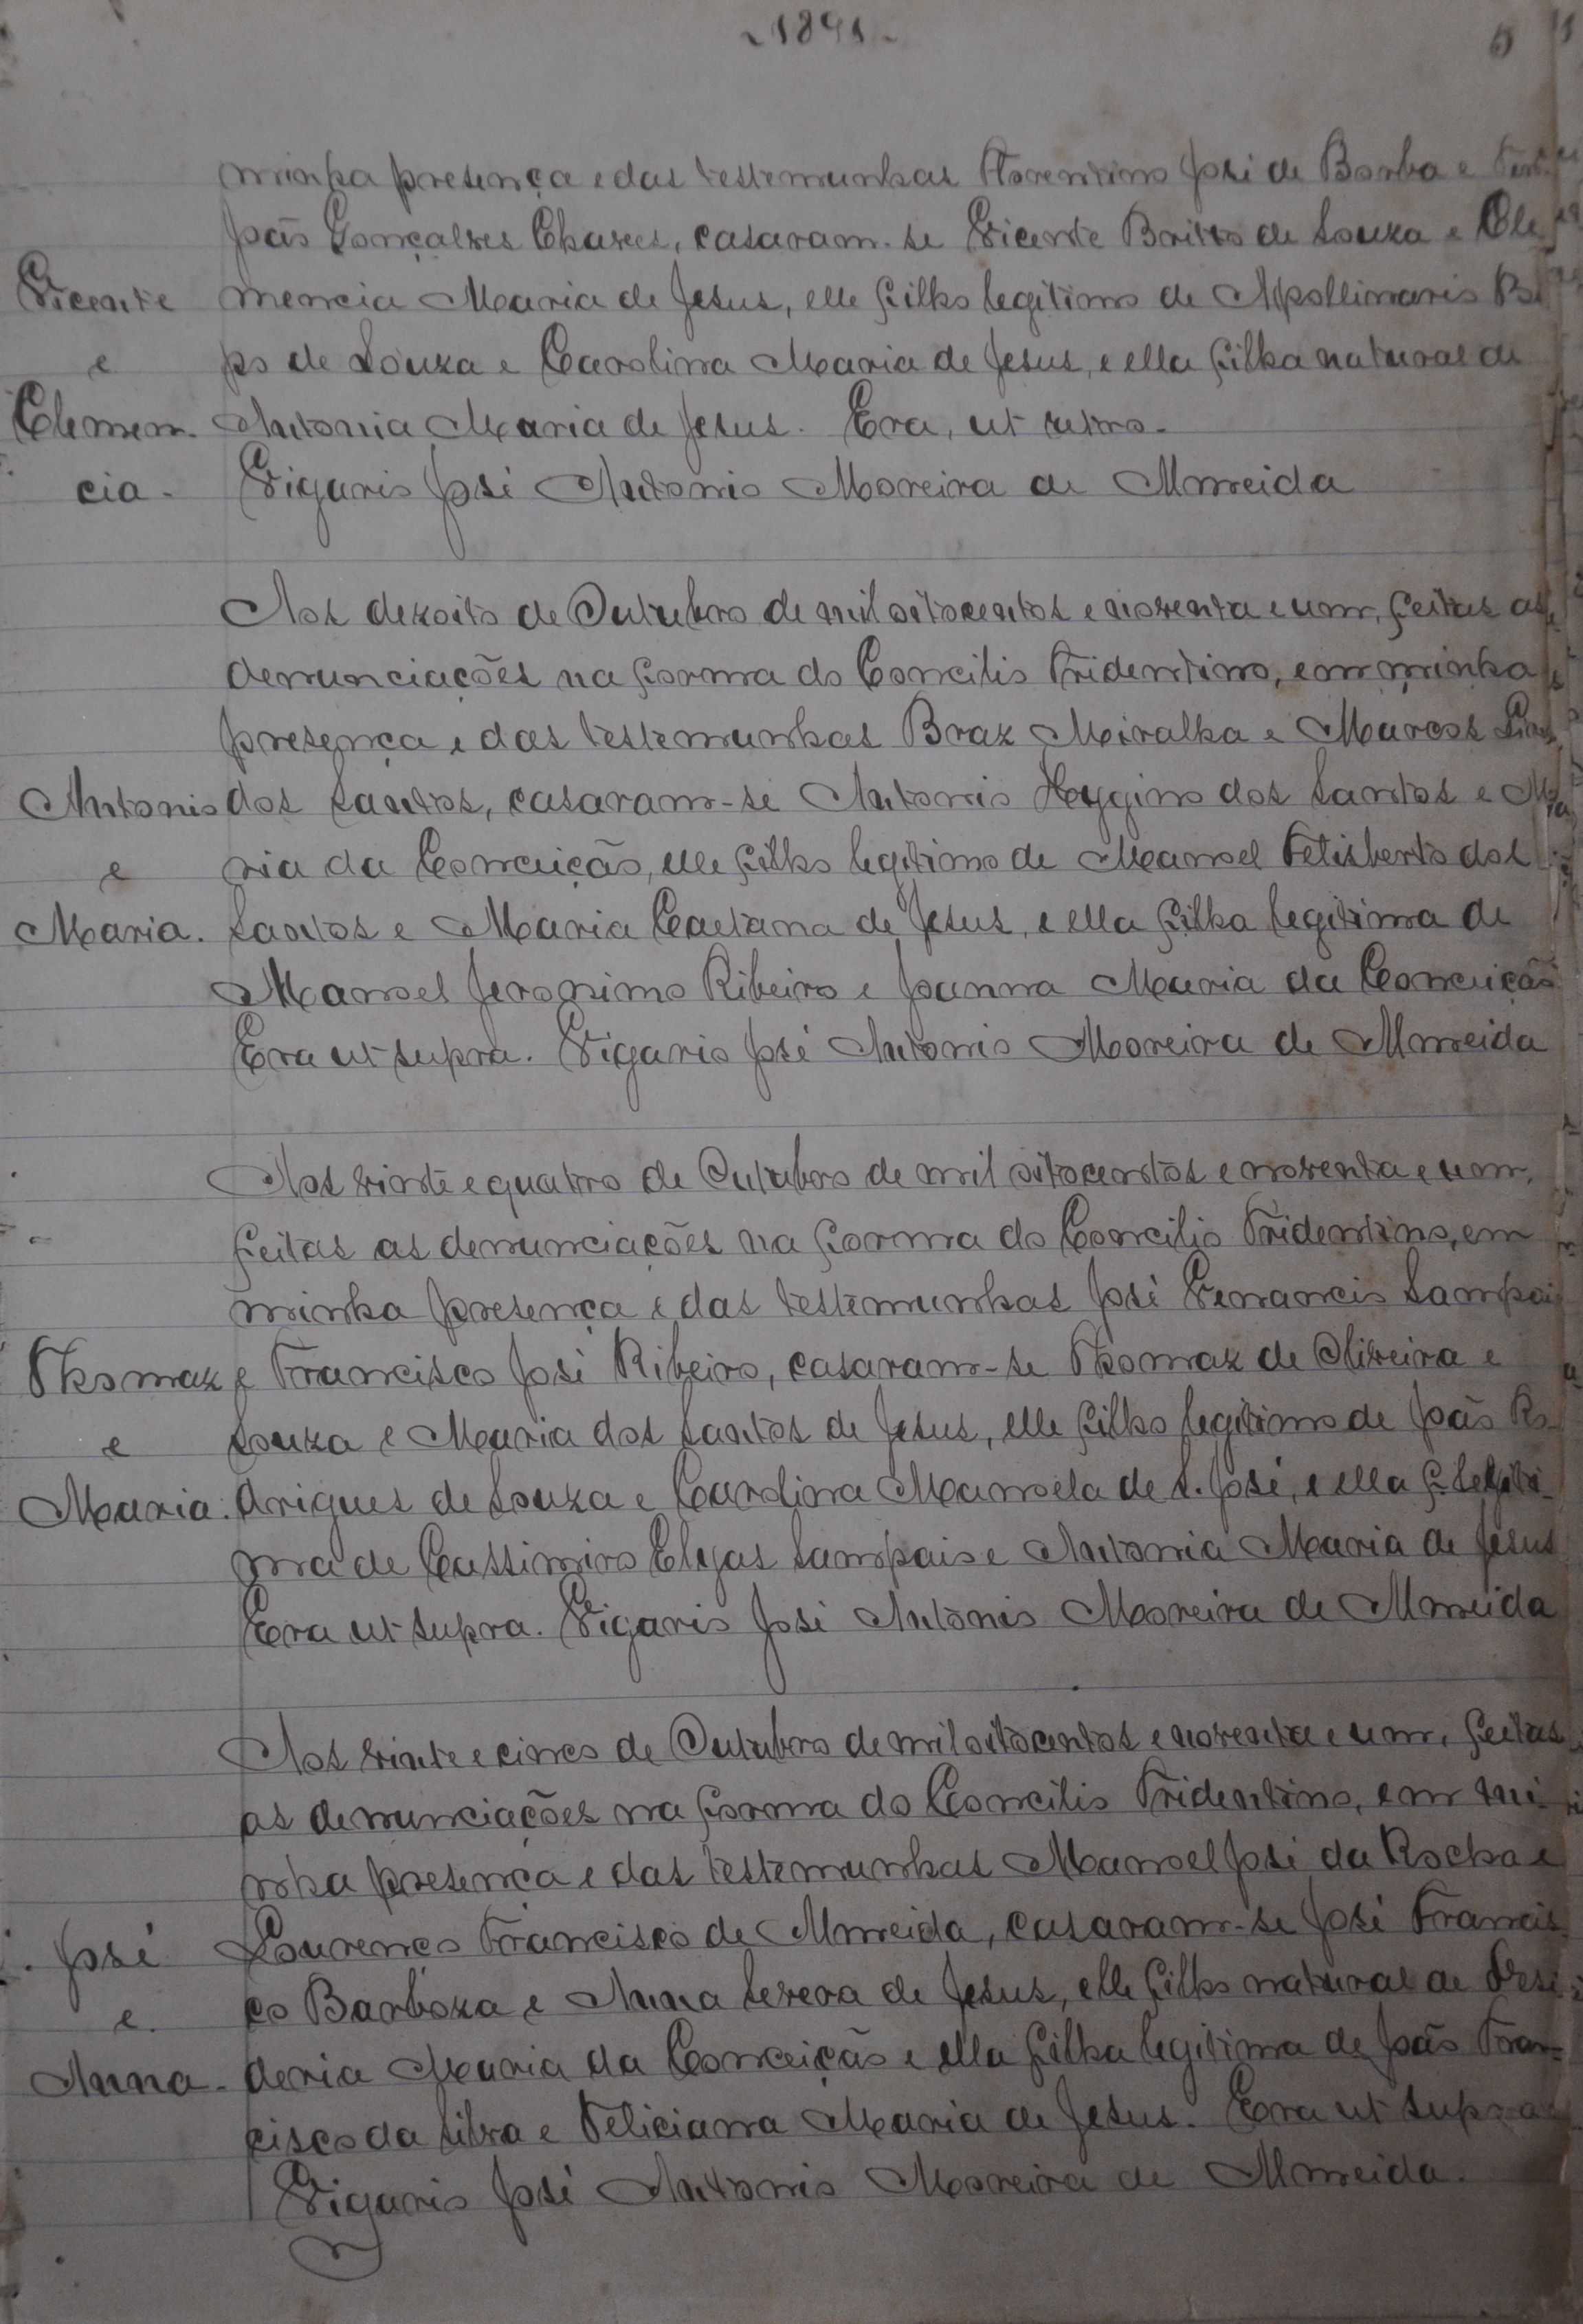 1891
minha presença e das testemunhas Florentino José de Borba e
João Gonçalves Chaves, casaram-se Vicente Britto de Souza e Cle
Vicente mencia Maria de Jesus, elle filho legitimo de Apollinario
e de Souza e Carolina Maria de Jesus, e ella filha natural de
Clemen- Antonia Maria de Jesus. Era, ut retro.
cia. Vigario José Antonio Moreira de Almeida
Aos dezoito de Outubro de mil oitocentos e noventa e um, feitas as
denunciações na forma do Concilio Tridentino, em minha
presença e das testemunhas Braz Miralha e Marcos
Antonio dos Santos, casaram-se Antonio Hyggino dos Santos e Ma
e ria da Conceição, elle filho legitimo de Manoel Felisberto dos
Maria. Santos e Maria Caetana de Jesus, e ella filha legitima de
Manoel Jeronimo Ribeiro e Joanna Maria da Conceição
Era ut supra. Vigario José Antonio Moreira de Almeida
Aos vinte e quatro de Outubro de mil oitocentos e noventa e um,
feitas as denunciações na forma do Concilio Tridentino, em
minha presença e das testemunhas José Venancio Sampaio
Thomaz e Francisco José Ribeiro, casaram-se Thomaz de Oliveira e
e Souza e Maria dos Santos de Jesus, elle filho legitimo de João Ro
Maria. drigues de Souza e Carolina Manoela de S. José, e ella f. legiti-
ma de Cassimiro Elyas Sampaio e Antonia Maria de Jesus
Era ut supra. Vigario José Antonio Moreira de Almeida
Aos vinte e cinco de Outubro de mil oitocentos e noventa e um, feitas
as denunciações na forma do Concilio Tridentino, em mi
nha presença e das testemunhas Manoel José da Rocha e
José Lourenço Francisco de Almeida, casaram-se José Francis
e. co Barboza e Anna Severa de Jesus, elle filho natural de Desi
Anna. deria Maria da Conceição e ella filha legitima de João Fran=
cisco da Silva e Feliciana Maria de Jesus. Era ut supra
Vigario José Antonio Moreira de Almeida.